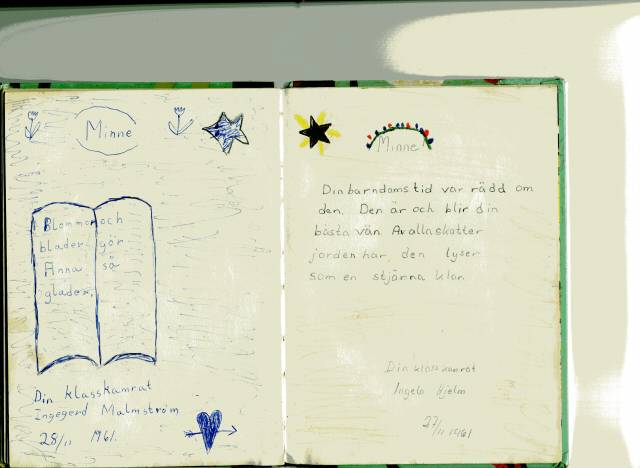 Minne
Blommor och
blader gör
Anna så
glader.
Din klasskamrat
Ingegerd Malmström
28/11 1961.
Minne
Din barndomstid var rädd om
den. Den är och blir din
bästa vän. Av alla skatter
jorden har, den lyser
som en stjärna klar.
Din klasskamrat
Ingela Hjelm
27/11 1961